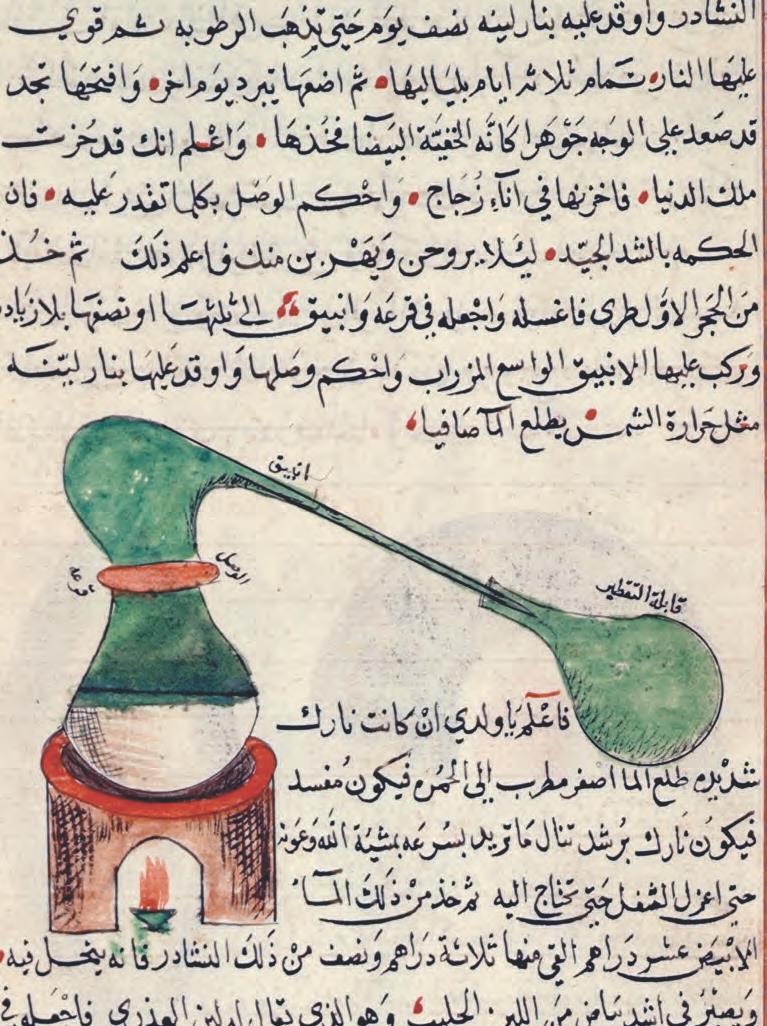 النشادر واوقد عليه بنار لينه نصف يوم حتى تذهب الرطوبه ثم قوي
عليها النار تمام ثلاثه ايام بلياليها ثم اضعها تبرد يوم اخر وافتحها تجد
قد صعد على الوجه جوهرا كانه البيضا فخذها واعلم انك قد حزت
ملك الدنيا فاخزنها في اناء زجاج واحكم الوصل بكلما تقدر عليه فان
الحكمه بالشد الجيد ليلا يروحن ويهربن منك فاعلم ذلك ثم خذ
من الحجر الاول طرى فاغسله واجعله في قرعه وانبيق الى ثلثها او نصفها بلا زياده
وركب عليها الانبيق الواسع المزراب واحكم وصلها واوقد عليها بنار لينه
مثل حرارة الشمس يطلع الما صافيا
انبيق
الوصل
قرعه
قابلة التقطير
فاعلم يا ولدي ان كانت نارك
شديده طلع الما اصفر مطرب الى الحمره فيكون مفسد
فيكون نارك برشد تنال ما تريد بسرعه بمشية الله وعونه
حتى اعزل الثفل حتى تحتاج اليه ثم خذ من ذلك الما
الابيض عشر دراهم القي منها ثلاثة دراهم ونصف من ذلك النشادر فانه ينحل فيه
ويصير في اشد بياض من اللبن الحليب وهو الذي يقال له لبن العذري فاجعله في